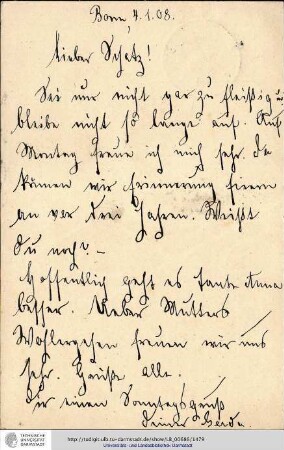 Bonn, 4.1.08.
Lieber Schatz!
Sei nur nicht gar zu fleißig u
bleibe nicht so lange auf. Auf
Montag freue ich mich sehr. Da
können wir Erinnerung feiern
an vor drei Jahren. Weißt
du noch? –
Hoffentlich geht es Tante Anna
besser. Ueber Mutters
Wohlergehen freuen wir uns
sehr. Grüße alle.
Dir einen Sonntagsgruß
Deine Gerda.
TECHNISCHE
UNIVERSITÄT
DARMSTADT
http://tudigit.ulb.tu-darmstadt.de/show/LB_00686/1479
Universitäts- und Landesbibliothek Darmstadt